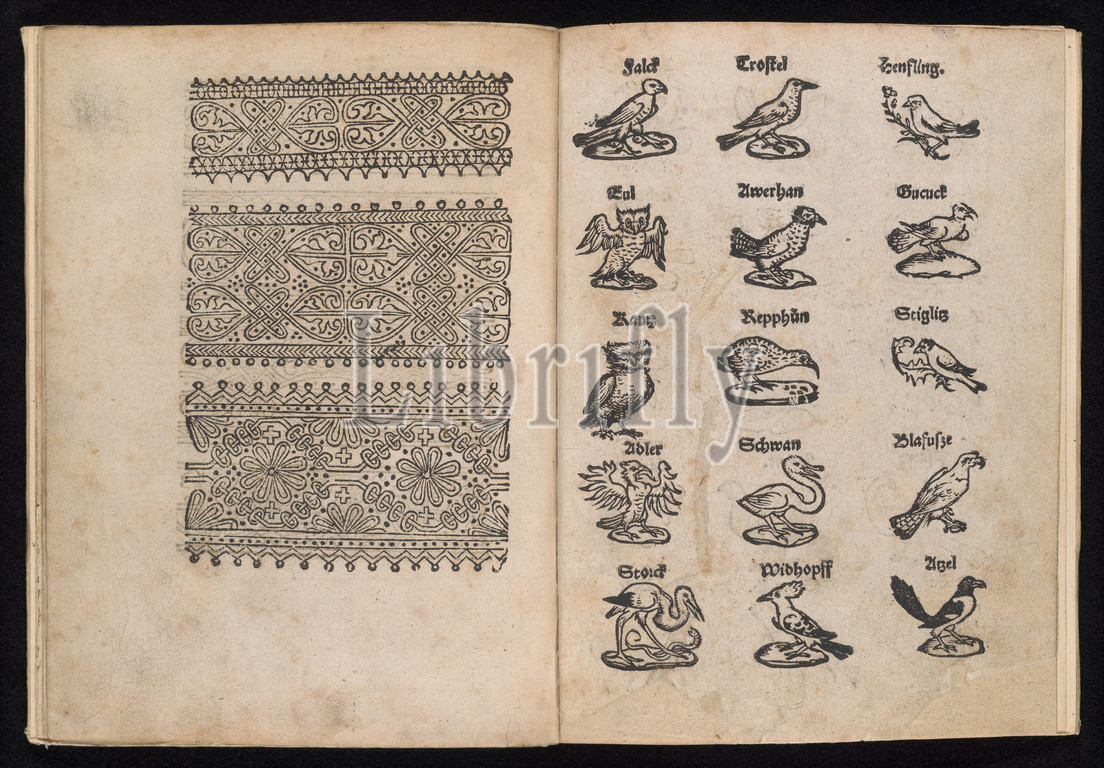 Falck Trostel Henfling.
Eul Awerhan Gucuck
Kautz Repphůn Stiglitz
Librifly
Adler Schwan Blafusze
Storck Widhopff Atzel